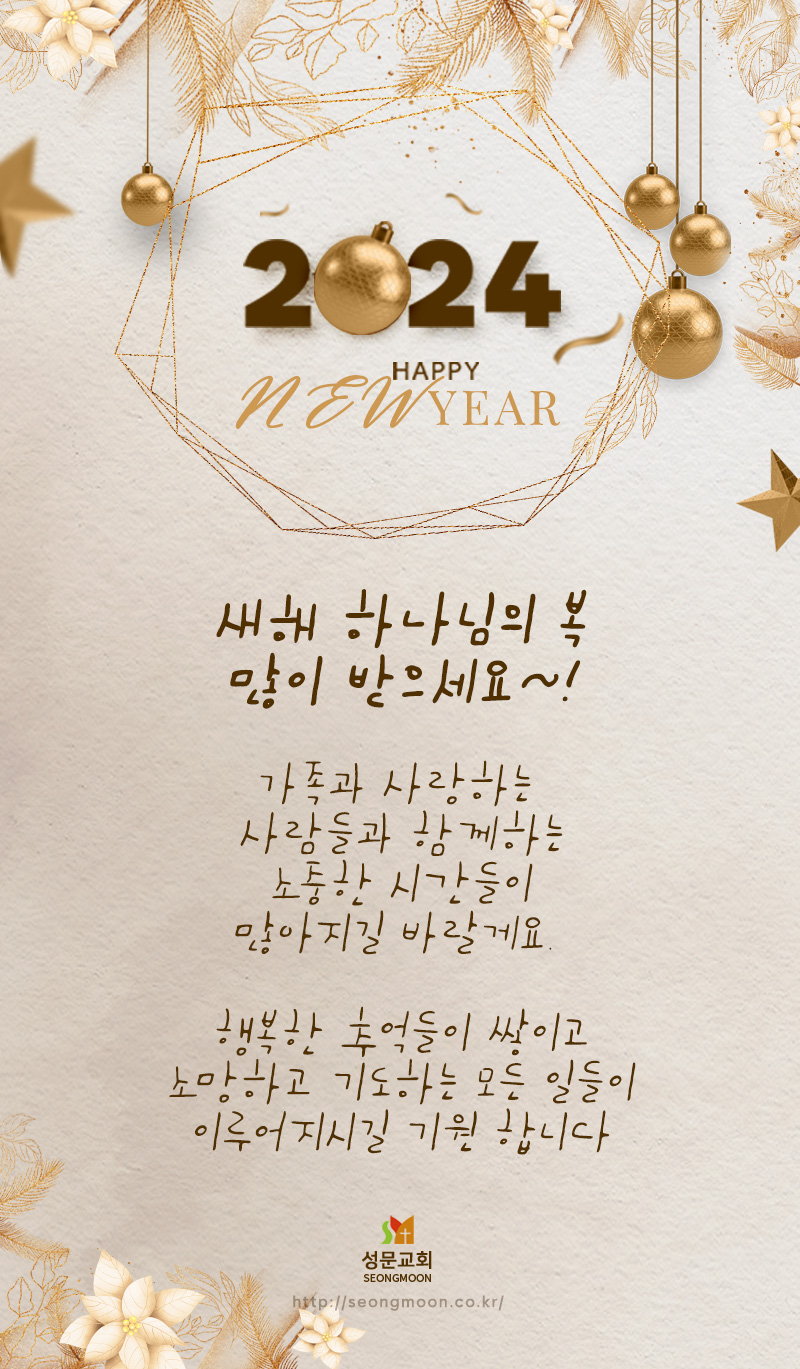 2024
HAPPY
NEW YEAR
새해 하나님의 복
많이 받으세요~!
가족과 사랑하는
사람들과 함께하는
소중한 시간들이
많아지길 바랄게요.
행복한 추억들이 쌓이고
소망하고 기도하는 모든 일들이
이루어지시길 기원 합니다
성문교회
SEONGMOON
http://seongmoon.co.kr/